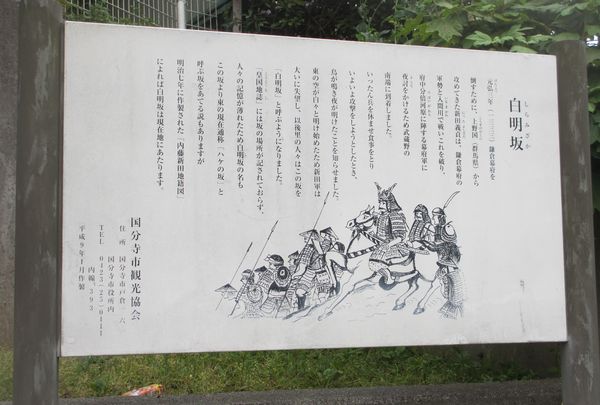 しらみざか
白明坂
元弘三年(一三三三)、鎌倉幕府を
倒すために、上野国(群馬県)から
攻めてきた新田義貞は、鎌倉幕府の
軍勢と久間川で戦いこれを破り、
府中分倍河原に陣する幕府軍に
夜討をかけるため武蔵野の
南端に到着しました。
いったん兵を休ませ食事をとり
いよいよ攻撃をしようとしたとき、
鳥が鳴き夜が明けたことを知らせました。
東の空が白々と明け始めたため新田軍は
大いに失望し、以後里の人々はこの坂を
「白明坂」と呼ぶようになりました。
「皇国地誌」には坂の場所が記されておらず、
人々の記憶が薄れたため白明坂の名も
この坂より東の現在通称「ハケの坂」と
呼ぶ坂をあてる説もありますが
明治七年に作製された「内藤新田地籍図」
によれば白明坂は現在地にあたります。
国分寺市観光協会
住所 国分寺市戸倉一六
国分寺市役所内
TEL 0423-25-0111
内線 393
平成9年1月作製